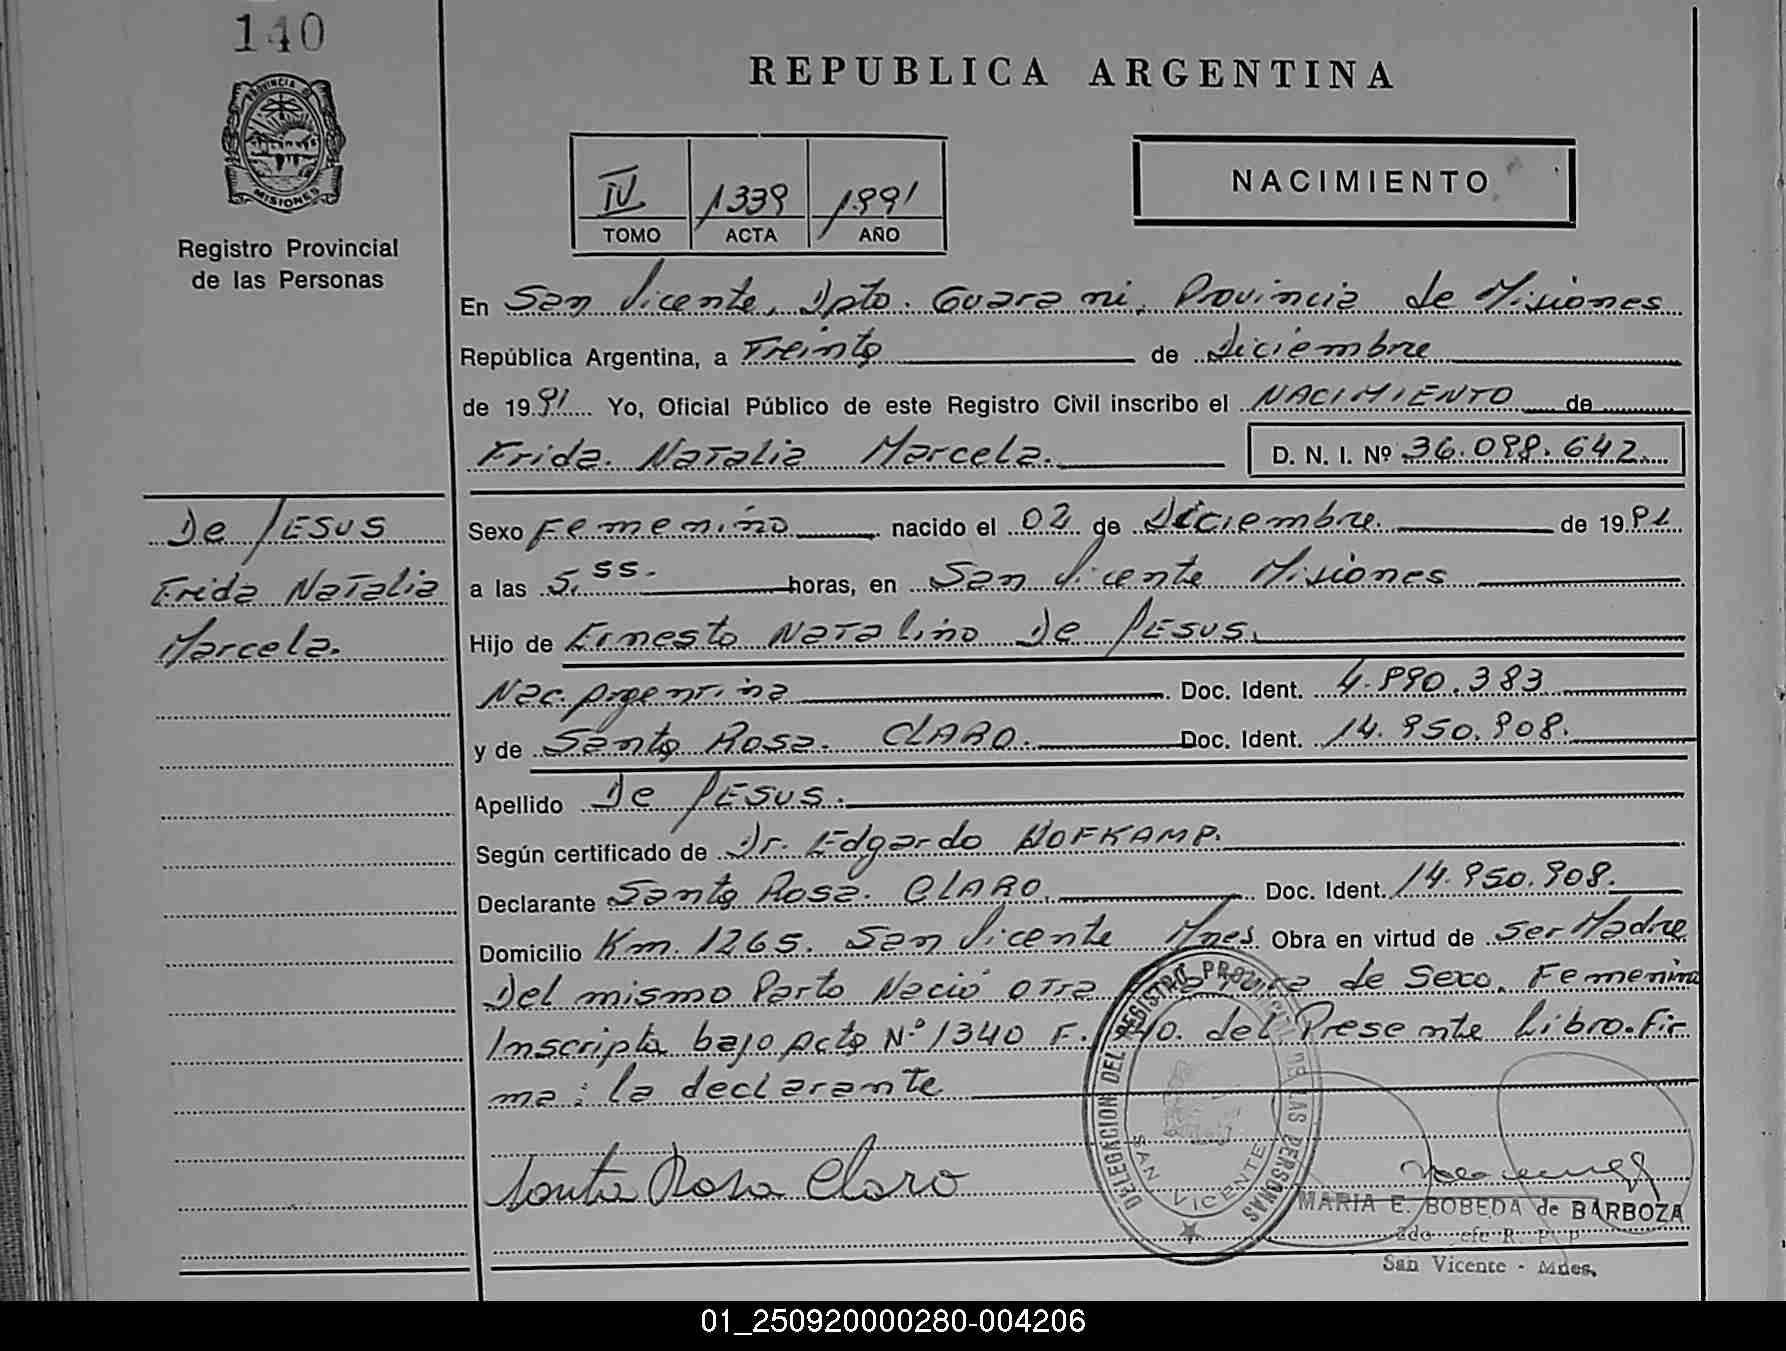 140
PROVINCIA DE
MISIONES
Registro Provincial
de las Personas
REPUBLICA ARGENTINA
IV 1339 1991
TOMO ACTA AÑO
NACIMIENTO
En San Vicente, Dpto. Guarani, Provincia de Misiones
República Argentina, a Treinta de Diciembre
de 1991 Yo, Oficial Público de este Registro Civil inscribo el NACIMIENTO de
Frida Natalia Marcela. D. N. I. Nº 36.098.642
De JESUS
Frida Natalia
Marcela.
Sexo Femenino nacido el 02 de Diciembre de 1991
a las 5,55. horas, en San Vicente Misiones
Hijo de Ernesto Natalino De JESUS.
Nac. Argentina Doc. Ident. 4.890.383
y de Santa Rosa CLARO. Doc. Ident. 14.950.908.
Apellido De JESUS.
Según certificado de Dr. Edgardo HOFKAMP.
Declarante Santa Rosa CLARO. Doc. Ident. 14.950.908.
Domicilio Km. 1265. San Vicente Mnes. Obra en virtud de Ser Madre
Del mismo Parto Nació otra de Sexo Femenino
Inscripta bajo Acta Nº 1340 F. 140. del Presente Libro. Fir
ma: la declarante
DELEGACION DEL REGISTRO PROVINCIAL DE LAS PERSONAS
SAN VICENTE
Santa Rosa Claro
MARIA E. BOBEDA de BARBOZA
2do Jefe R. P. P.
San Vicente - Mnes.
01_250920000280-004206